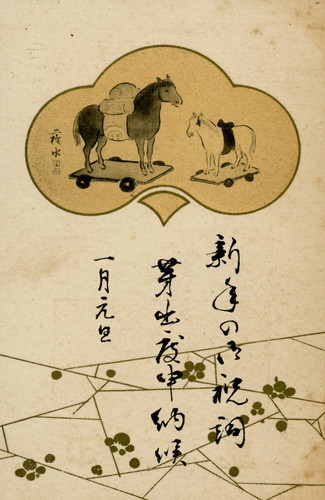 新年の御祝詞
芽出度申納候
一月元旦